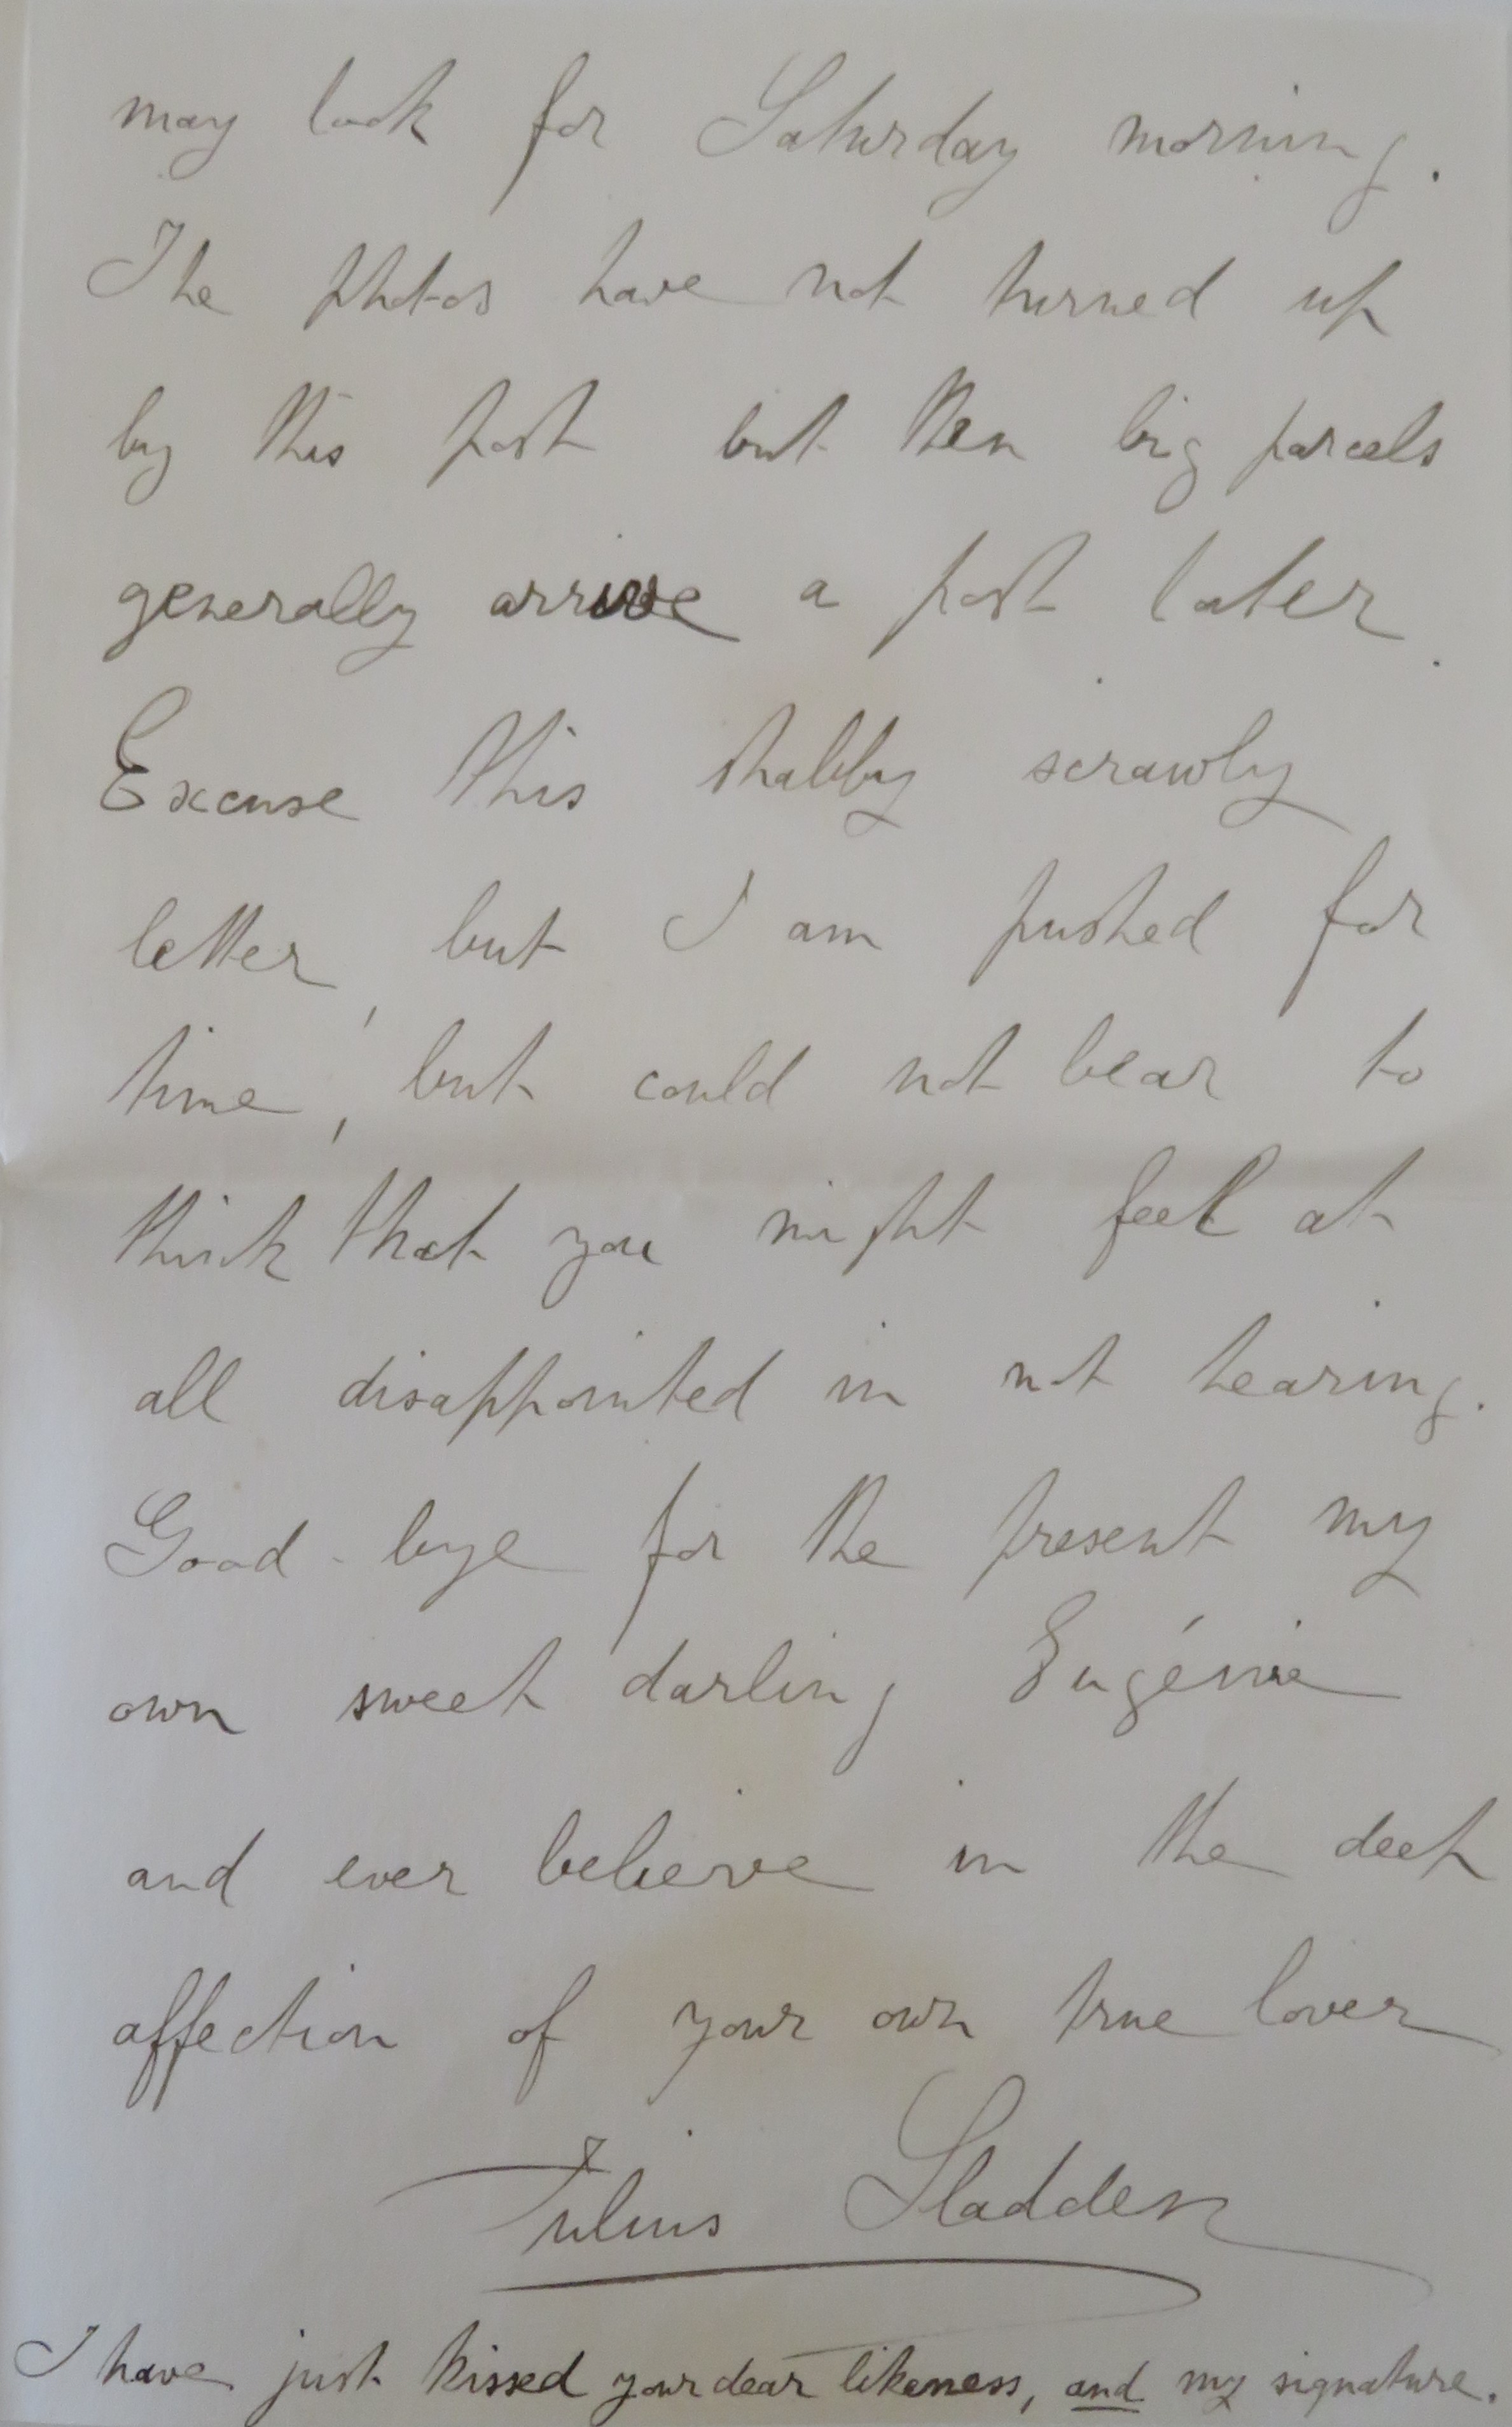 may look for Saturday morning.
The photos have not turned up
by this post but then big parcels
generally arrive a post later.
Excuse this shabby scrawly
letter, but I am pushed for
time, but could not bear to
think that you might feel at
all disappointed in not hearing.
Good-bye for the present my
own sweet darling Eugénie
and ever believe in the deep
affection of your own true lover
Julius Sladden
I have just kissed your dear likeness, and my signature.